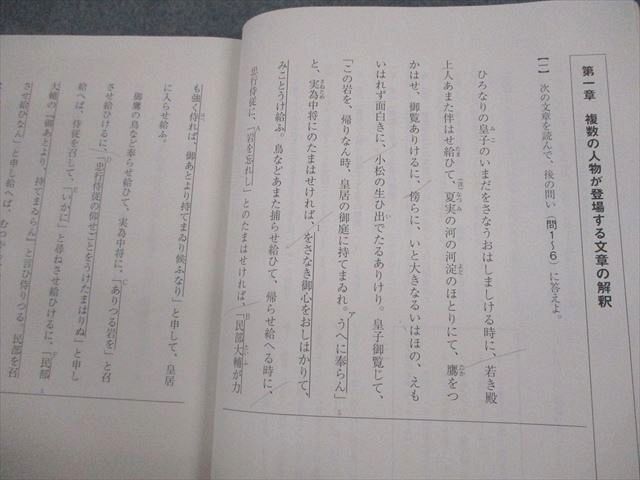 第一章　複数の人物が登場する文章の解釈
【一】　次の文章を読んで、後の問い（問1～6）に答えよ。
ひろなりの皇子のいまだをさなうおはしましける時に、若き殿
上人あまた伴はせ給ひて、夏実の河の河淀のほとりにて、鷹をつ
かはせ、御覧ありけるに、傍らに、いと大きなるいはほの、えも
いはれず面白きに、小松の生ひ出でたるありけり。皇子御覧じて、
「この岩を、帰りなん時、皇居の御庭に持てまゐれ。うへに奉らん」
と、実為中将にのたまはせければ、をさなき御心をおしはかりて、
みことうけ給ふ。鳥などあまた捕らせ給ひて、帰らせ給へる時に、
忠行侍従に、「岩を忘れし」とのたまはせければ、「民部大輔が力
も強く侍れば、御あとより、持てまゐり候ふなり」と申して、皇居
に入らせ給ふ。
御鷹の鳥など奉らせ給ひて、実為中将に、「ありつる岩を」と召
させ給ひけるに、「忠行侍従の仰せごとをうけたまはりぬ」と申し
給へば、侍従を召して、「いかに」と尋ねさせ給ひけるに、「民部
大輔の『御あとより、持てまゐらん』と言ひ侍りつる。民部を召
させ給ひなん」と申し給へば、